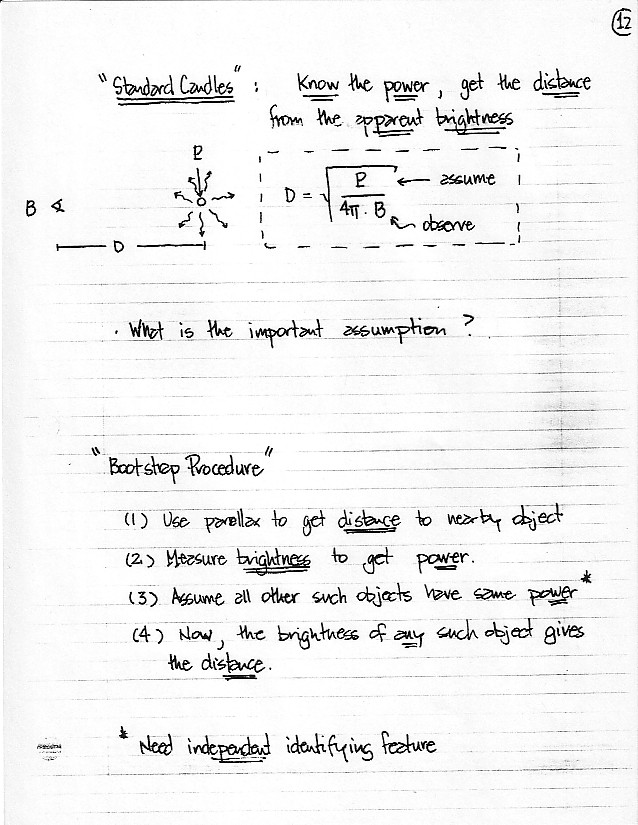 12
"Standard Candles" : Know the power, get the distance
from the apparent brightness
P
B
D
D = √ P / 4π · B
assume
observe
· What is the important assumption ?
"Bootstrap Procedure"
(1) Use parallax to get distance to nearby object
(2) Measure brightness to get power.
(3) Assume all other such objects have same power*
(4) Now, the brightness of any such object gives
the distance.
* Need independent identifying feature